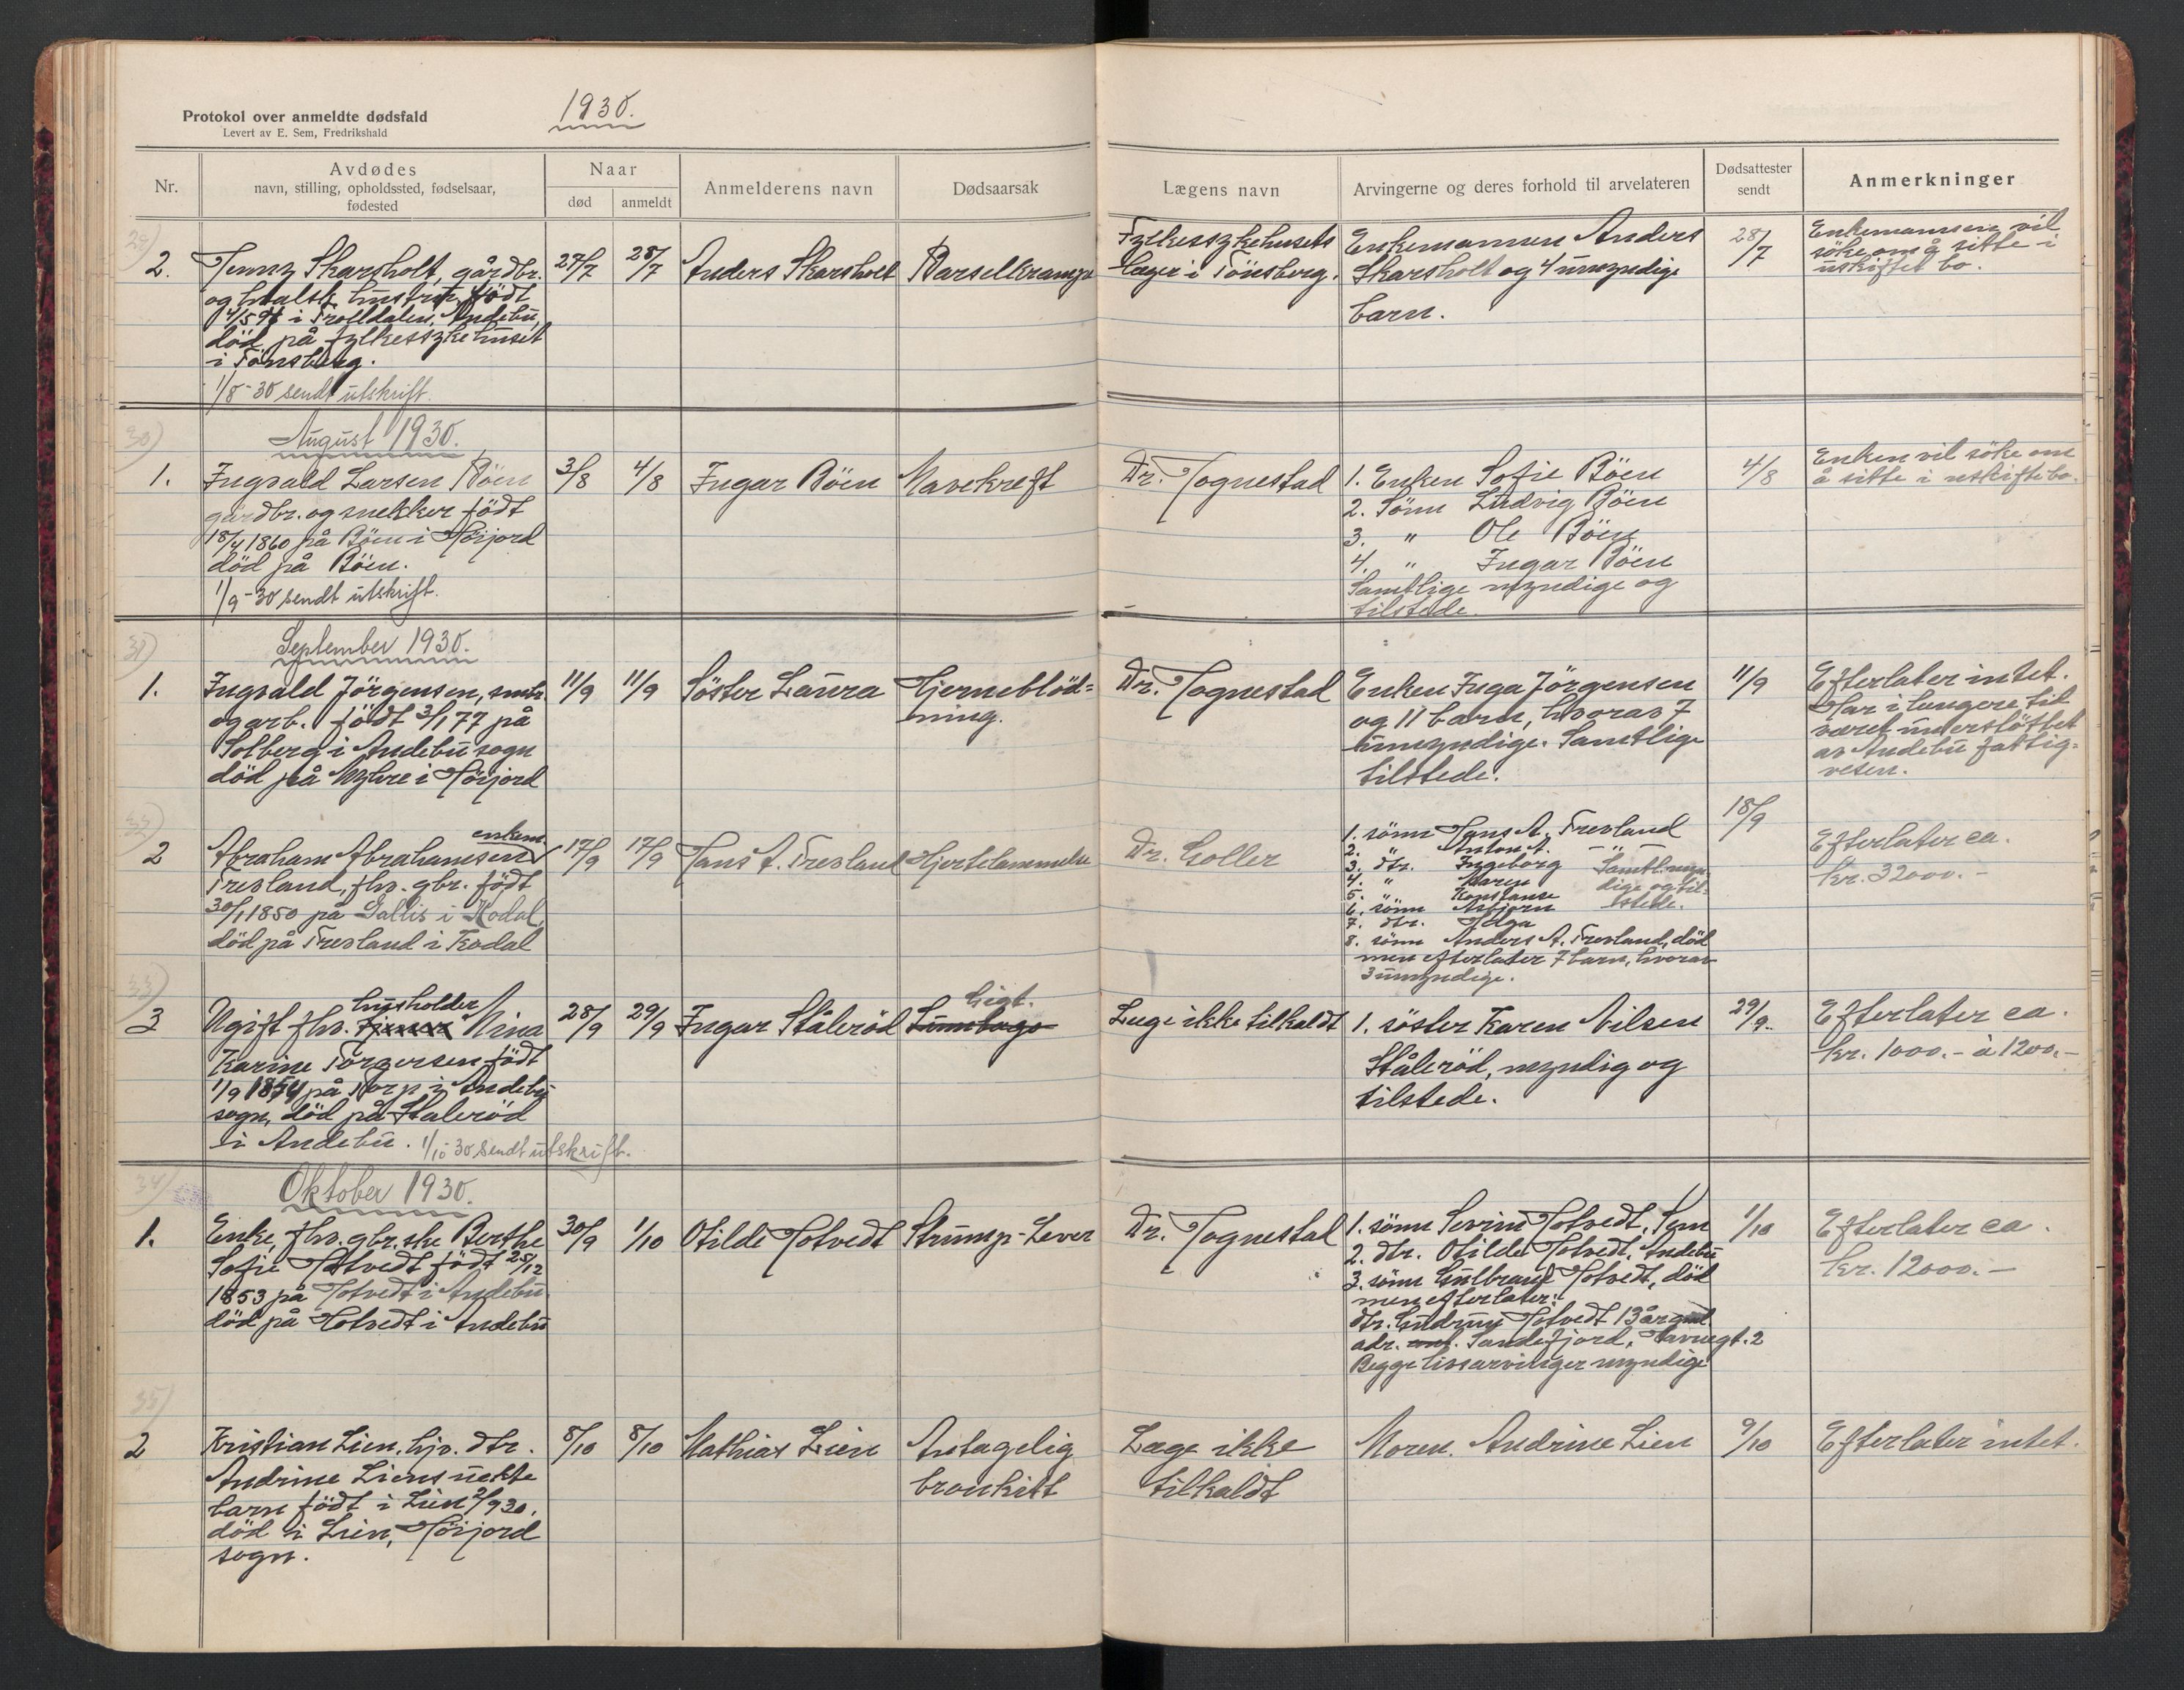 1930.
Protokol over anmeldte dødsfald
Levert av E. Sem, Fredrikshald
Nr.
Avdødes
navn, stilling, opholdssted, fødselsaar,
fødested
Naar
død
anmeldt
Anmelderens navn
Dødsaarsak
Lægens navn
Arvingerne og deres forhold til arvelateren
Dødsattester
sendt
Anmerkninger
29)
2.
Jenny Skarsholt, gårdbr.
og hvalsk. hustru, født
i Trolldalen, Andebu,
død på fylkessykehuset
i Tönsberg.
1/8-30 sendt utskrift.
27/7
28/7
Anders Skarsholt
Barselkrampe
Fylkessykehusets
læger i Tönsberg.
Enkemannen Anders
Skarsholt og 4 umyndige
barn.
28/7
Enkemannen vil
söke om å sitte i
uskiftet bo.
30)
August 1930.
1.
Ingvald Larsen Böen
gårdbr. og snekker född
18/4 1860 på Böen i Höijord
död på Böen.
1/9-30 sendt utskrift.
3/8
4/8
Ingar Böen
Mavekreft
Dr. Tognestad
1. Enken Sofie Böen
2. Sönn Ludvig Böen
3. " Ole Böen
4. " Ingar Böen
Samtlige myndige og
tilstede.
4/8
Enken vil söke om
å sitte i uskifte bo.
31)
September 1930.
1.
Ingvald Jörgensen, smbr.
og arb. född 3/1 77 på
Solberg i Andebu sogn
död på Myhre i Höijord
11/9
11/9
Söster Laura
Hjerneblöd=
ning.
Dr. Tognestad
Enken Inga Jörgensen
og 11 barn, hvorav 7
umyndige. Samtlige
tilstede.
11/9
Efterlater intet.
Har i lengere tid
været understöttet
av Andebu fattig-
vesen.
32)
2
enkem.
Abraham Abrahamsen
Tresland, fhv. gbr. född
30/1 1850 på Gallis i Kodal,
död på Tresland i Kodal
17/9
17/9
Hans A. Tresland
Hjertelammelse
Dr. Holler
1. sönn Hans A. Tresland
2. " Anton A. -"-
3. dtr. Ingeborg Samtl. myn-
4. " Karen dige og til-
5. " Konstanse stede.
6. sönn Asbjørn
7. dtr. Helga
8. sönn Anders A. Tresland, död
men efterlater 7 barn, hvorav
3 umyndige.
18/9
Efterlater ca.
kr. 32000.-
33)
3
husholder
Ugift fhv. Nina
Karine Törgersen född
1/9 1854 på Torp i Andebu
sogn, död på Stålerød
i Andebu. 1/10-30 sendt utskrift.
28/9
29/9
Ingar Stålerød
Gigt.
Lumbago
Lege ikke tilkaldt
1. söster Karen Nilsen
Stålerød, myndig og
tilstede.
29/9.
Efterlater ca.
kr. 1000.- à 1200.-
34)
Oktober 1930.
1.
Enke, fhv. gbr.ske Berthe
Sofie Hotvedt född 25/12
1853 på Hotvedt i Andebu
död på Hotvedt i Andebu
30/9
1/10
Otilde Hotvedt
Strump-Lever
Dr. Tognestad
1. sönn Severin Hotvedt, Sem
2. dtr. Otilde Hotvedt, Andebu
3. sönn Gulbrand Hotvedt, död
men efterlater:
dtr. Gudrun Hotvedt 13 år gml.
adr. Sandefjord, Havnegt. 2
Begge livsarvinger myndige
1/10
Efterlater ca.
kr. 12000.-
35)
2
Kristian Lien, hjv. dtr.
Andrine Liens uekte
barn född i Lien 2/9 30.
död i Lien, Höijord
sogn.
8/10
8/10
Mathias Lien
Antagelig
bronkitt
Læge ikke
tilkaldt
Moren. Andrine Lien
9/10
Efterlater intet.